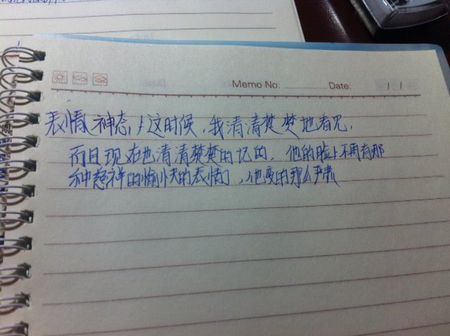 Memo No: Date: / /
表情、神态,这时候,我清清楚楚地看见,
而且现在也清清楚楚的记的,他的脸上不再有那
种慈祥的愉快的表情了,他变的那么严肃